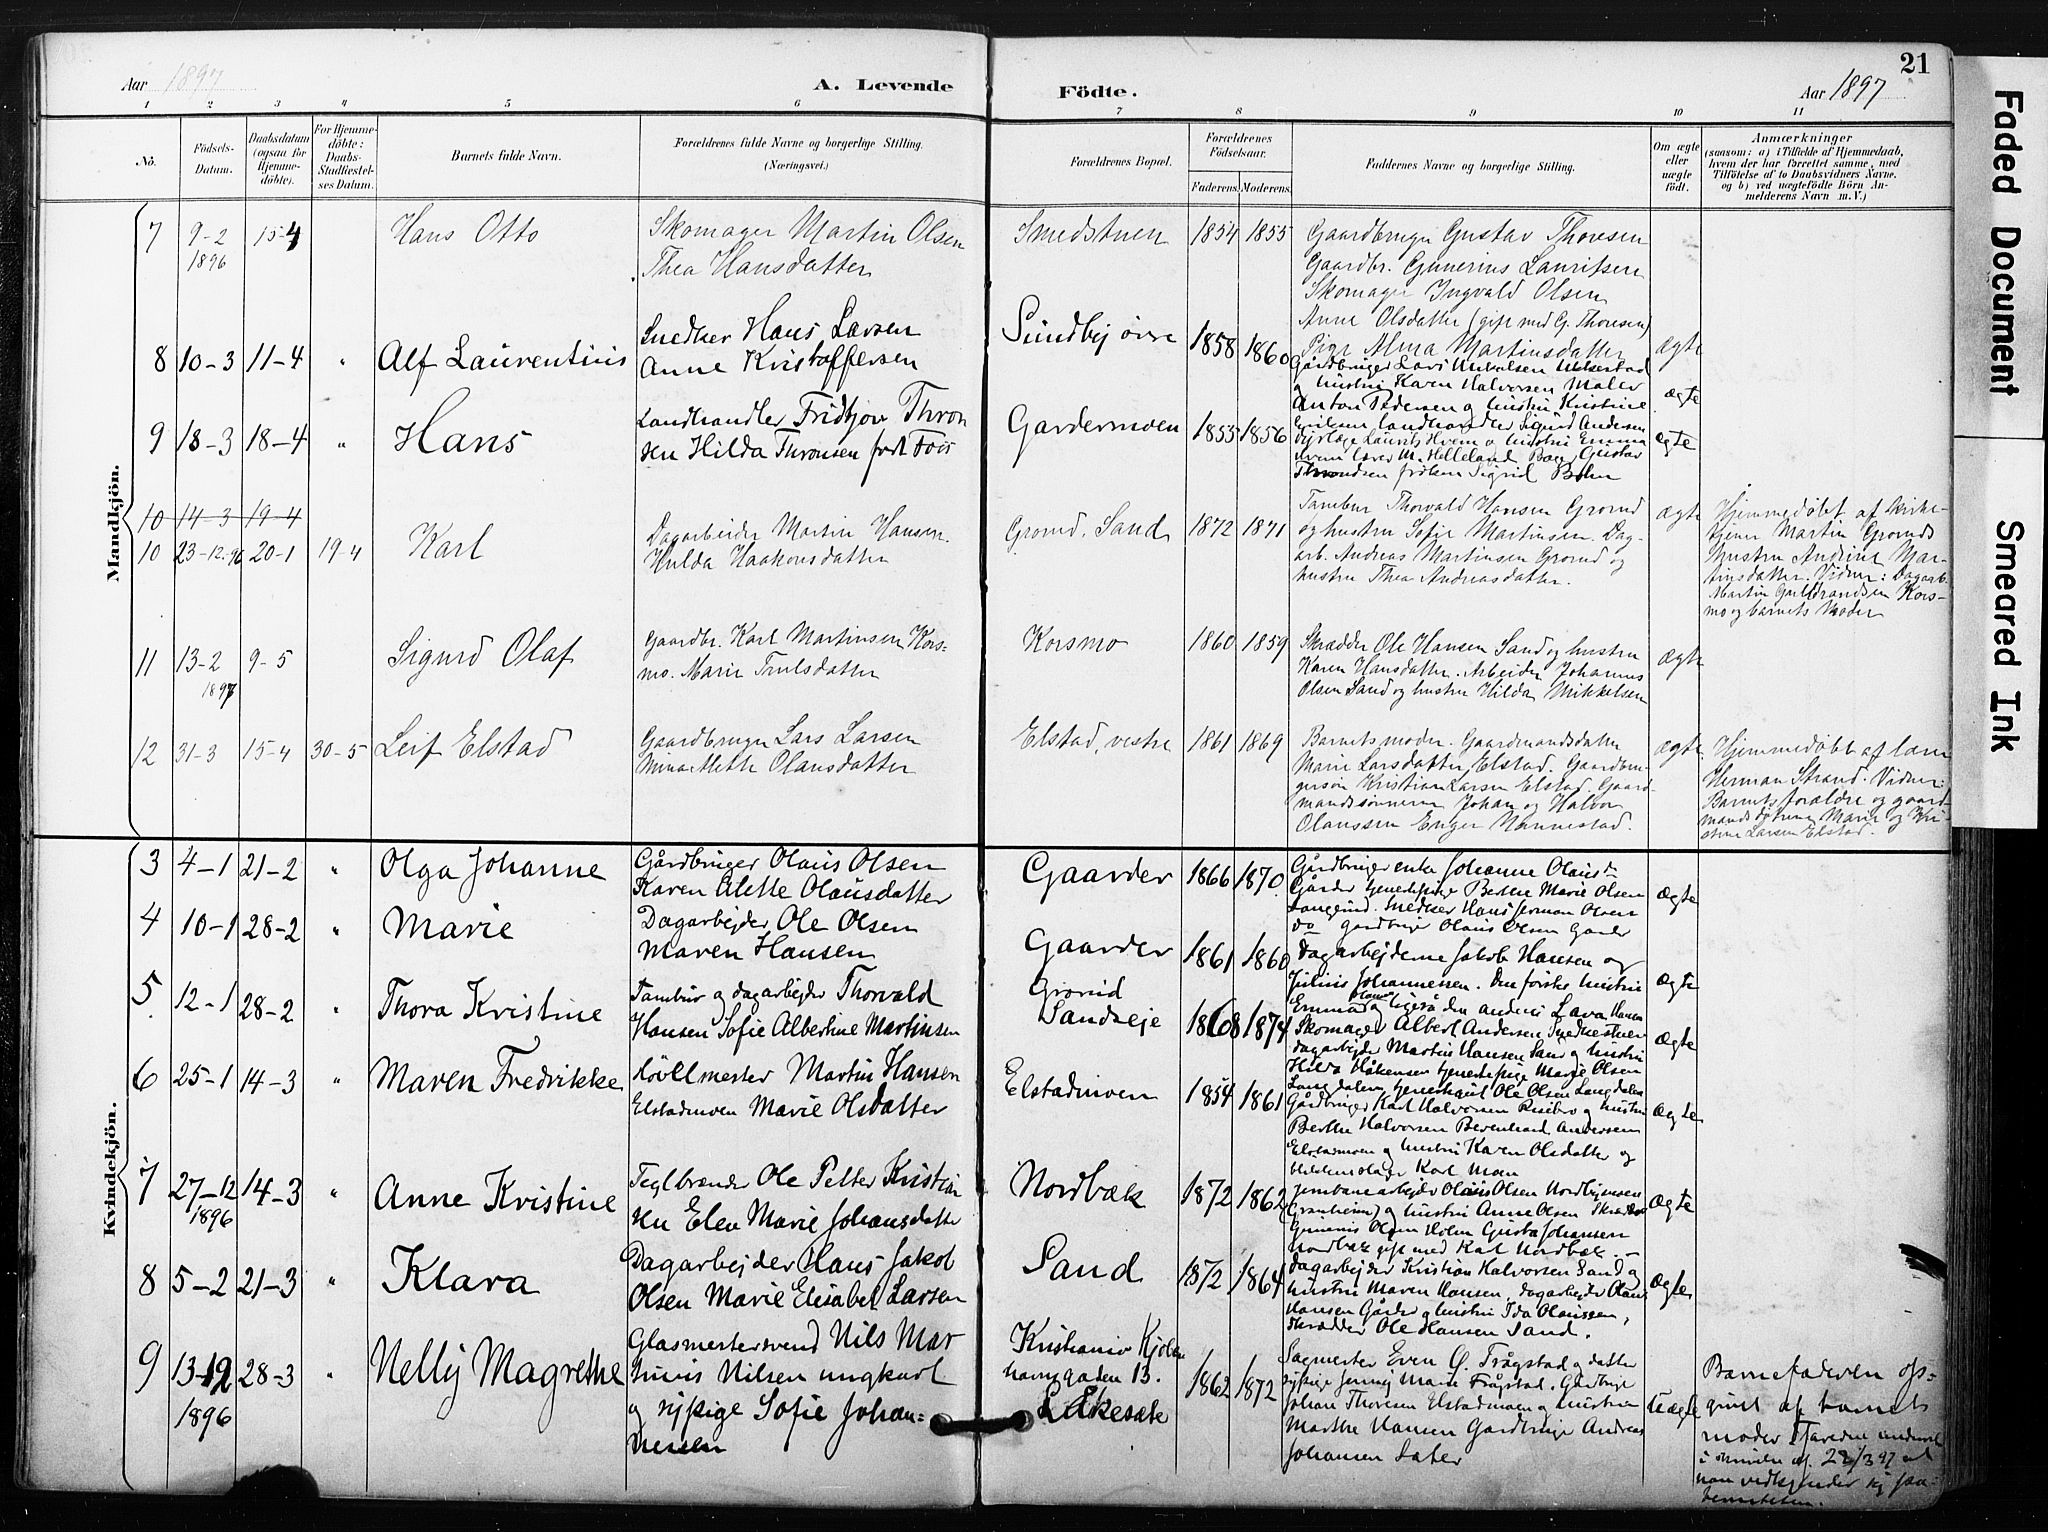 Aar 1897
A. Levende
Fødte.
Aar 1897
21
1 2 3 4 5 6 7 8 9 10 11
No.
Födsels-Datum.
Daabsdatum (ogsaa for Hjemme-döbte).
For Hjemme-döbte: Daabs-Stadfæstel-ses Datum.
Barnets fulde Navn.
Forældrenes fulde Navne og borgerlige Stilling. (Næringsvei.)
Forældrenes Bopæl.
Forældrenes Födselsaar.
Faderens. Moderens.
Faddernes Navne og borgerlige Stilling.
Om ægte eller uægte født.
Anmærkninger
(saasom: a) i Tilfælde af Hjemmedaab,
hvem der har forrettet samme, med
Tilföielse af to Daabsvidners Navne.
og b) ved uægtefödte Börn An-
melderens Navn m. V.)
Mandkjön.
7 9-2 1896 15-4 Hans Otto
Skomager Martin Olsen
Thea Hansdatter
Smedstuen 1854 1855
Gaardbruger Gustav Thoresen
Gaardbr. Gunerius Lauritsen
Skomager Ingvald Olsen
Anne Olsdatter (gift med G. Thoresen)
Pige Alma Martinsdatter
ægte
8 10-3 11-4 " Alf Laurentius
Snedker Hans Larsen
Anne Kristoffersen
Sundby øvre 1858 1860
Gårdbruger Lars Mikkelsen
og hustru Karen Halvorsen Maler
Anton Pedersen og hustru Kristine
ægte
9 18-3 18-4 " Hans
Landhandler Fridtjov Thron
sen Hilda Thronsen født Fois
Gardermoen 1855 1856
landhandler Sigurd Andersen
Dyrlæge Laurits Hvem og hustru Emma
Hvem lærer M. Helleland Gustav
Throndsen frøken Sigrid
ægte
10 14-3 19-4
10 23-12-96 20-1 19-4 Karl
Dagarbeider Martin Hansen.
Hulda Haakonsdatter
Gromd. Sand 1872 1871
Tambur Thorvald Hansen Gromd
og hustru Sofie Martinsen. Dag-
arb. Andreas Martinsen Gromd og
hustru Thea Andreasdatter.
ægte
Hjemmedøbt af Kirke-
tjener Martin Gromds
hustru Andrine Mar-
tinsdatter. Vidner: Dagarb.
Martin Gulbrandsen Kors-
mo og barnets Moder
11 13-2 1897 9-5 Sigurd Olaf
Gaardbr. Karl Martinsen Kors-
mo. Marie Trulsdatter
Korsmo 1860 1859
Skrædder Ole Hansen Sand og hustru
Karen Hansdatter. Arbeider Johannes
Olsen Sand og hustru Hilda Mikkelsen
ægte
12 31-3 15-4 30-5 Leif Elstad
Gaardbruger Lars Larsen
Mina Mette Olausdatter
Elstad, vestre 1861 1869
Barnets moder. Gaardmandsdatter
Marie Larsdatter Elstad. Gaardbru-
gersøn Kristian Larsen Elstad. Gaard-
mandssønnerne Johan og Halvor
Olaussen Enger Nannestad.
ægte.
Hjemmedøbt af lærer
Herman Strand. Vidner:
Barnets forældre og gaard-
mandsdøtrene Marie og Kri-
stine Larsen Elstad.
Kvindekjön.
3 4-1 21-2 " Olga Johanne
Gårdbruger Olaus Olsen
Karen Alette Olausdatter
Gaarder 1866 1870.
Gårdbruger enke Johanne Olausdr
Gårder tjenestepige Berthe Marie Olsen
Langerud. Snedker Hans Herman Olsen
do gårdbruger Olaus Olsen Gårder
ægte
4 10-1 28-2 " Marie
Dagarbejder Ole Olsen
Maren Hansen
Gaarder 1861 1860
Dagarbejderne Jakob Hansen og
Julius Johannessen. Den førstes hustru
Emma Olausd og ligeså den andens Lava Hansen
ægte
5. 12-1 28-2 " Thora Kristine
Tambur og dagarbejder Thorvald
Hansen Sofie Albertine Martinsen
Gromd Sandseje 1868 1874
Skomager Albert Andersen Smedstuen
dagarbejder Martin Hansen Sand og hustru
Hilda Håkensen tjenestepige Marie Olsen
Langdalen tjenestekarl Ole Olsen Langdalen
ægte
6 25-1 14-3 " Maren Fredrikke
Høvlmester Martin Hansen
Elstadmoen Marie Olsdatter
Elstadmoen 1854 1861
Gårdbruger Karl Halvorsen Risebro og hustru
Berthe Halvorsen Bernhard Andersen
Elstadmoen og hustru Karen Olsdatter og
Karl Moen
ægte
7 27-12 1896 14-3 " Anne Kristine
Teglbrænder Ole Petter Kristian
sen Elen Marie Johansdatter
Nordbæk 1872 1862
Jernbanearbejder Olaus Olsen Nordbymoen
(Granheim) og hustru Anne Olsen Skrædder
Gunerius Olsen Holm Gusta Johansen
Nordbæk gift med Karl Nordbæk.
ægte
8 5-2 21-3 " Klara
Dagarbejder Hans Jakob
Olsen Marie Elisabet Larsen
Sand 1872 1864
Dagarbejder Kristian Halvorsen Sand og
hustru Maren Hansen, dagarbejder Olaus
Hansen Gårder og hustru Ida Olaussen,
skrædder Ole Hansen Sand.
ægte
9 13-12 1896 28-3 " Nelly Magrethe
Glasmestersvend Nils Mar
tinius Nilsen ungkarl
og sypige Sofie Johan=
nessen
Kristiania Kjøben
havnsgaden 13.
Låkesæte
1862 1872
Sagmester Even G. Trågstad og datter
sypige Jenny Marie Trågstad. Gårdbruger
Johan Thoresen Elstadmoen og hustru
Marthe Hansen Gårdbruger Andreas
Johansen Sæter
Uægte
Barnefaderen op-
givet af barnets
moder
i skrivelse af 22/3 97 at
han vedkjender sig far-
Faded Document
Smeared Ink